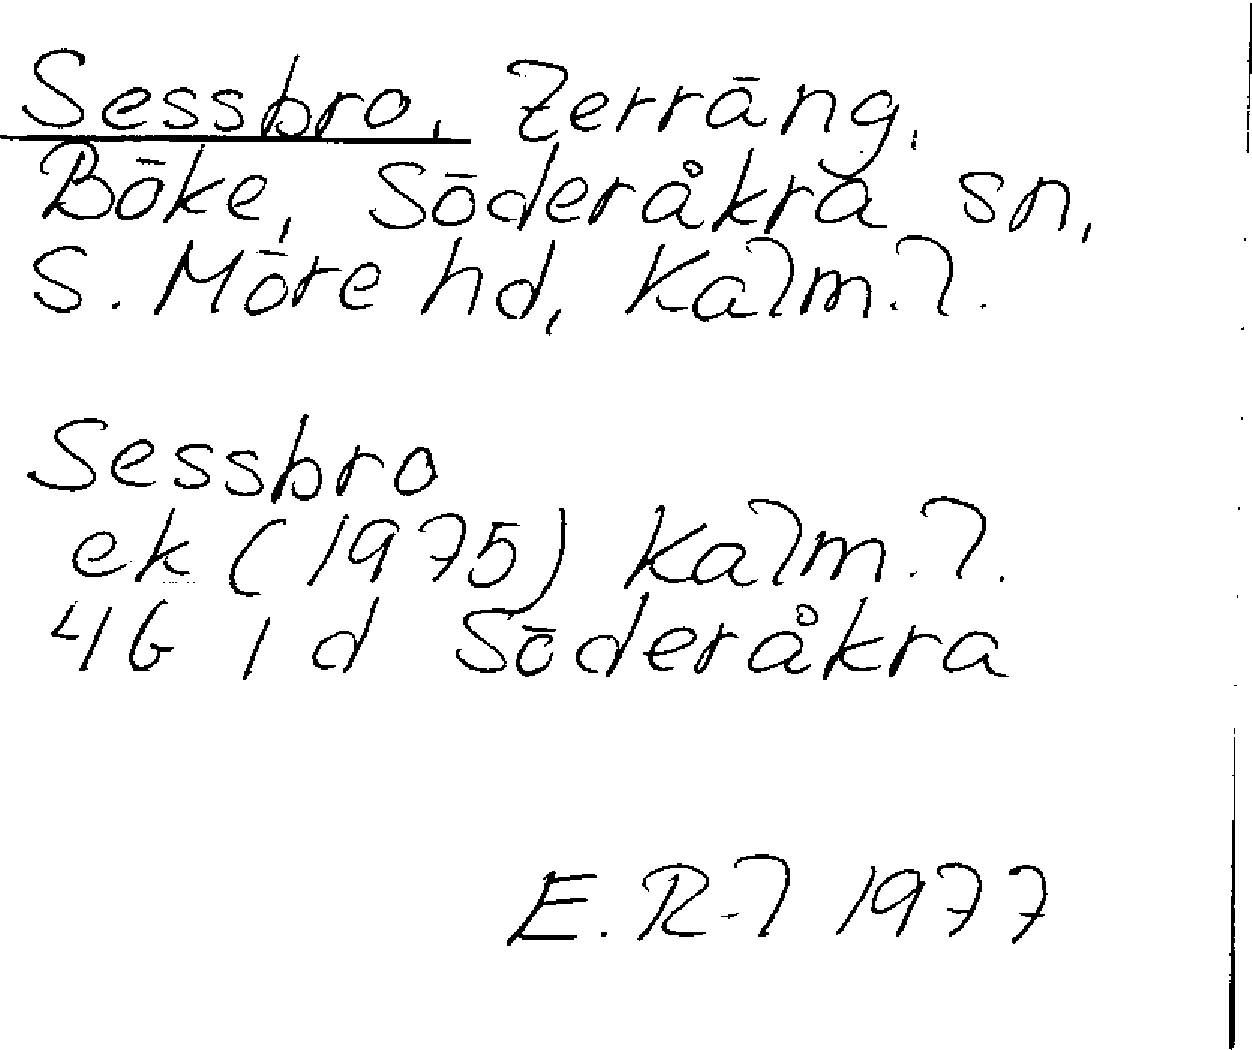 Sessbro, Terräng.
Böke, Söderåkra sn,
S. Möre hd, Kalm. l.
Sessbro
ek (1975) Kalm. l.
4G 1 d Söderåkra
E. R-l 1977